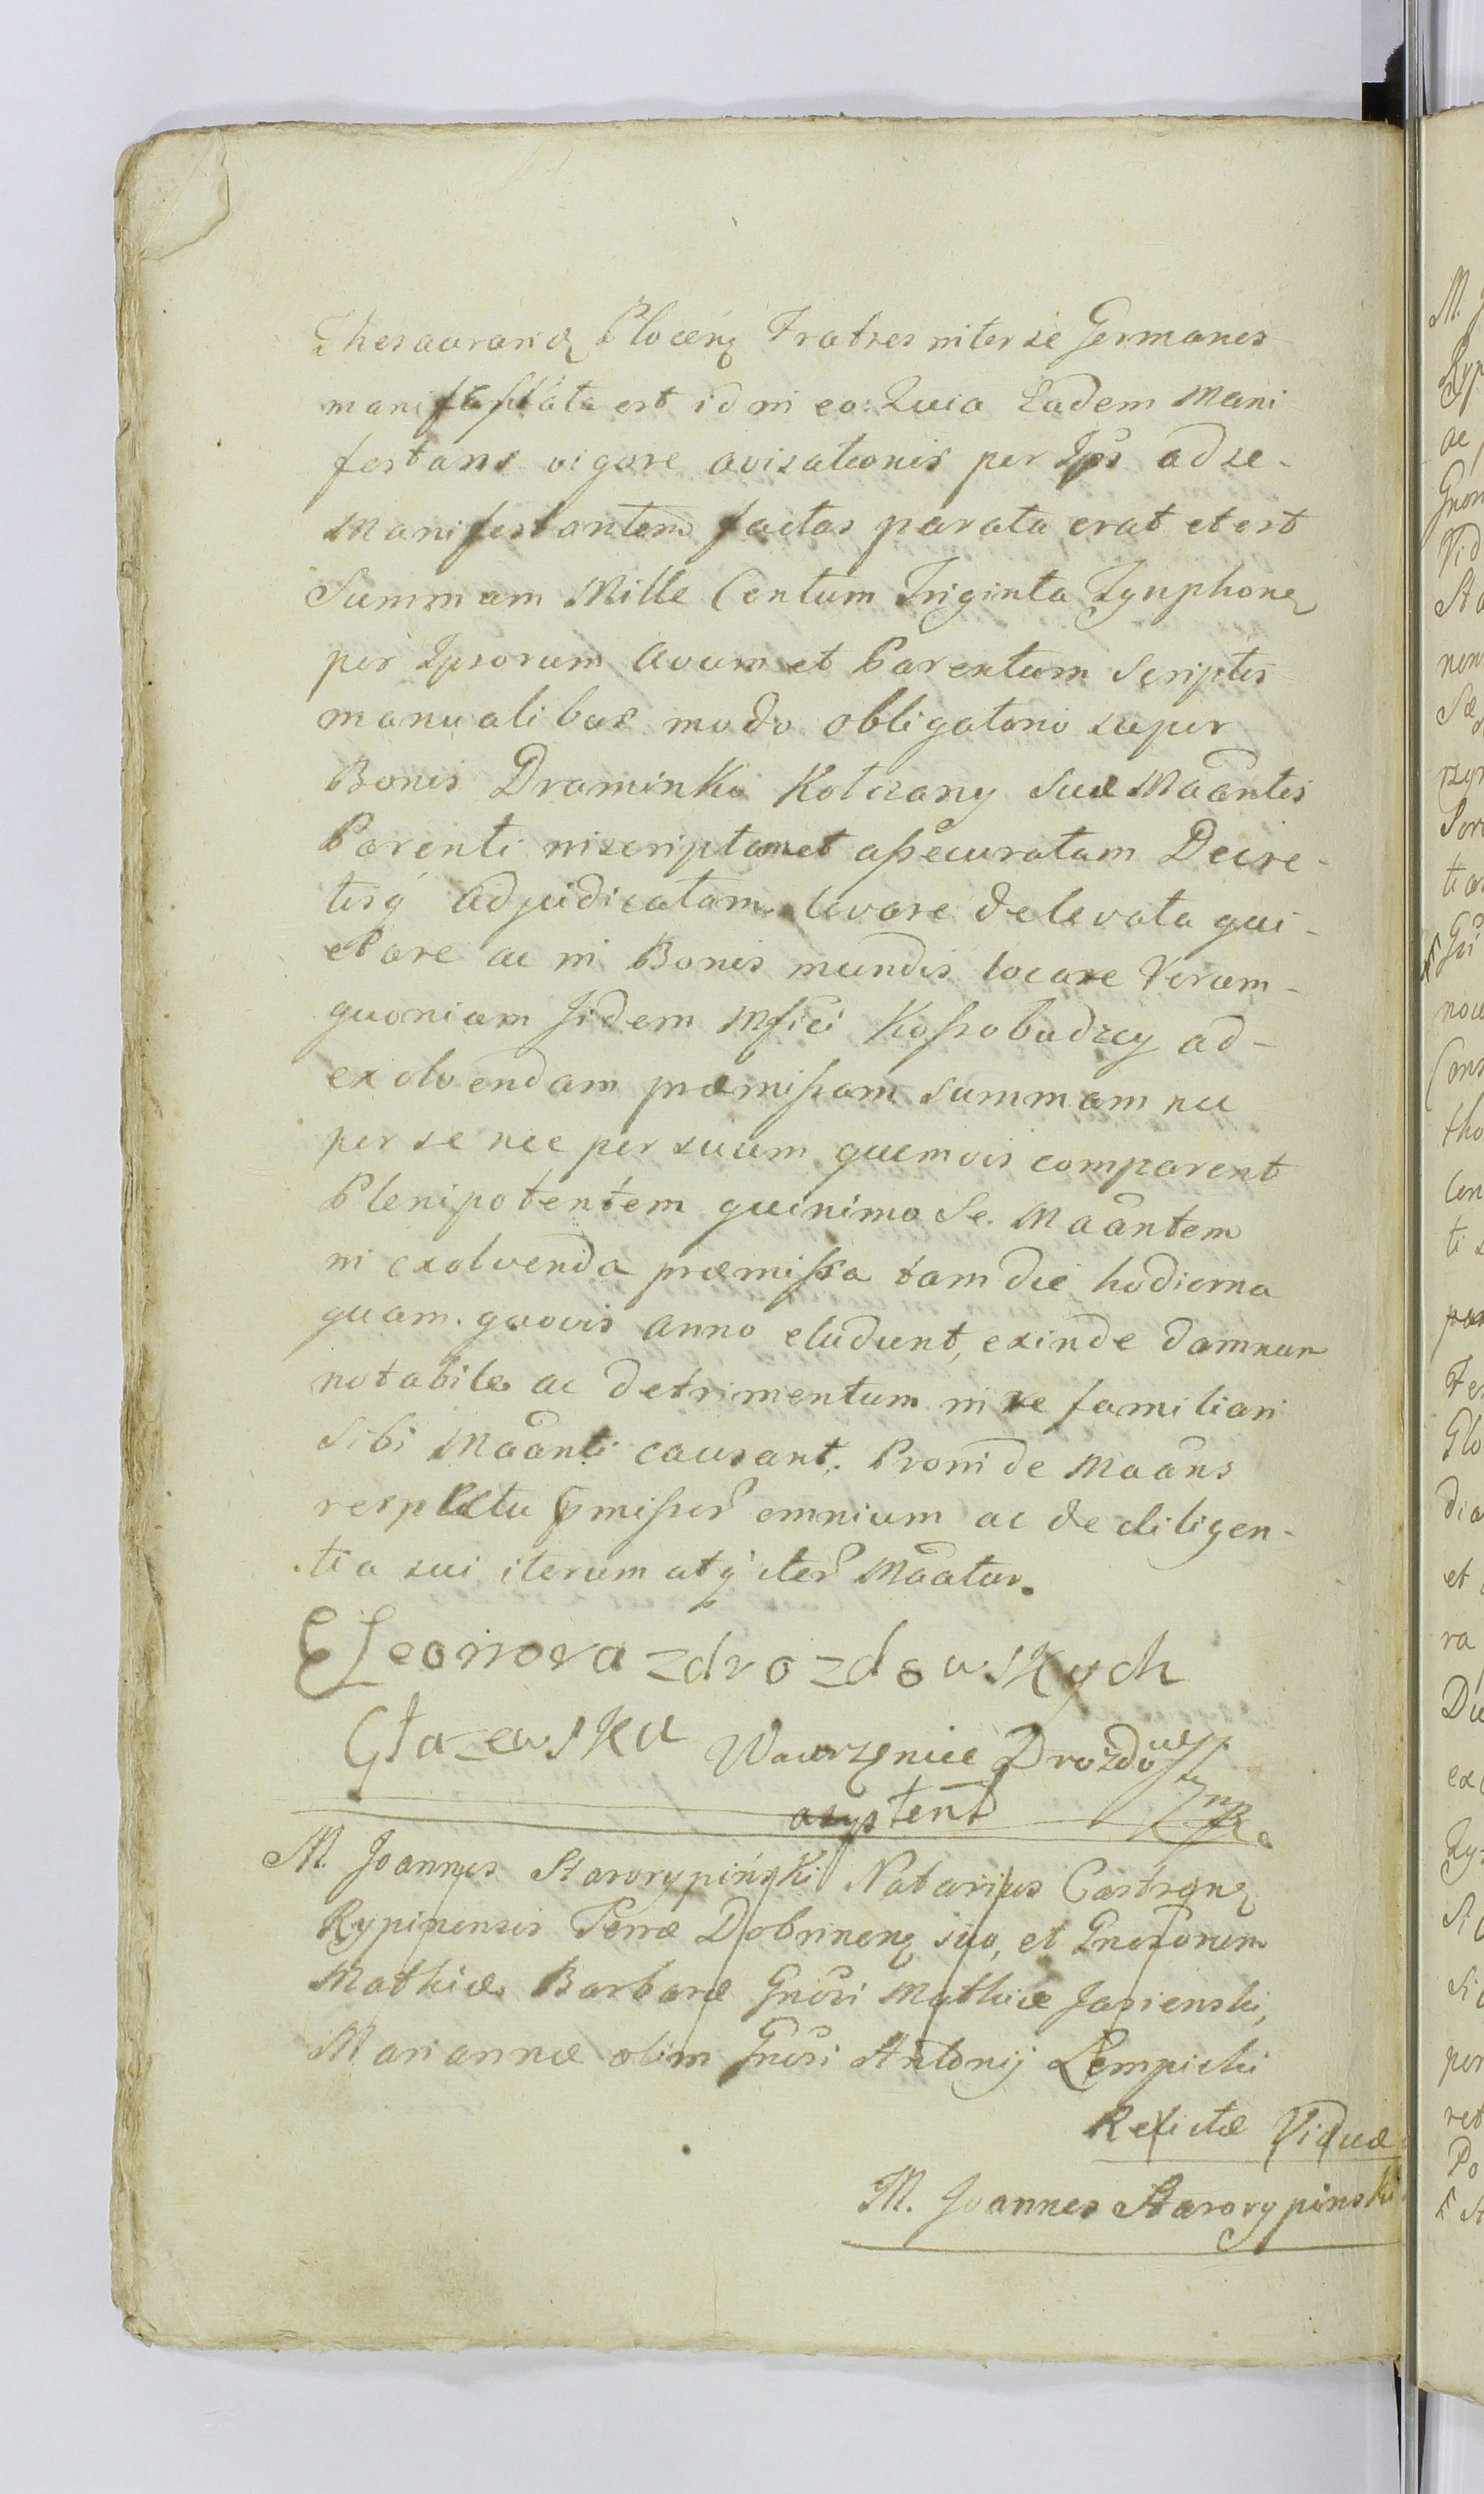 Thesaurariq Plocenq Fratres inter se Germanos
manifestata est id in eo: Quia Eadem Mani
festans vigore avisationis per Ips ad se-
Manifestantem factas parata erat et est
Summam Mille Centum Triginta Tynphonq
per Ipsorum Avum et Parentum Scriptis
manualibus modo obligatorio super
Bonis Draminko Kotczany Suæ Maantis
Parenti inscriptam et assecuratam Decre-
tisq adjudicatam levare de levata qui-
etare ac in Bonis mundis locare Verum-
quoniam Iidem Mfici Kossobudzcy ad-
exolvendam præmissam summam nec
per se nec per suum quemvis comparent
Plenipotentem quinimo Se Maantem
in exolvenda præmissa tam die hodierna
quam quovis anno eludunt, exinde damnum
notabile ac detrimentum in re familiari
Sibi Maanti causant. Proinde Maans
respectu pmissor omnium ac de diligen-
tia sui iterum atq iter Maatur.
ELeonora zdrozdowskych
Głazewska Wawrzęniec Drozdowsk
asystent mp
M. Joannes Starorypiński Notarius Castrenq
Rypinensis Terræ Dobrinenq suo, et Gnosorum
Mathiæ Barbaræ Gnosi Mathiæ Jasienski,
Mariannæ olim Gnosi Antonij Lempicki
Relictæ Viduæ
M. Joannes Starorypinski